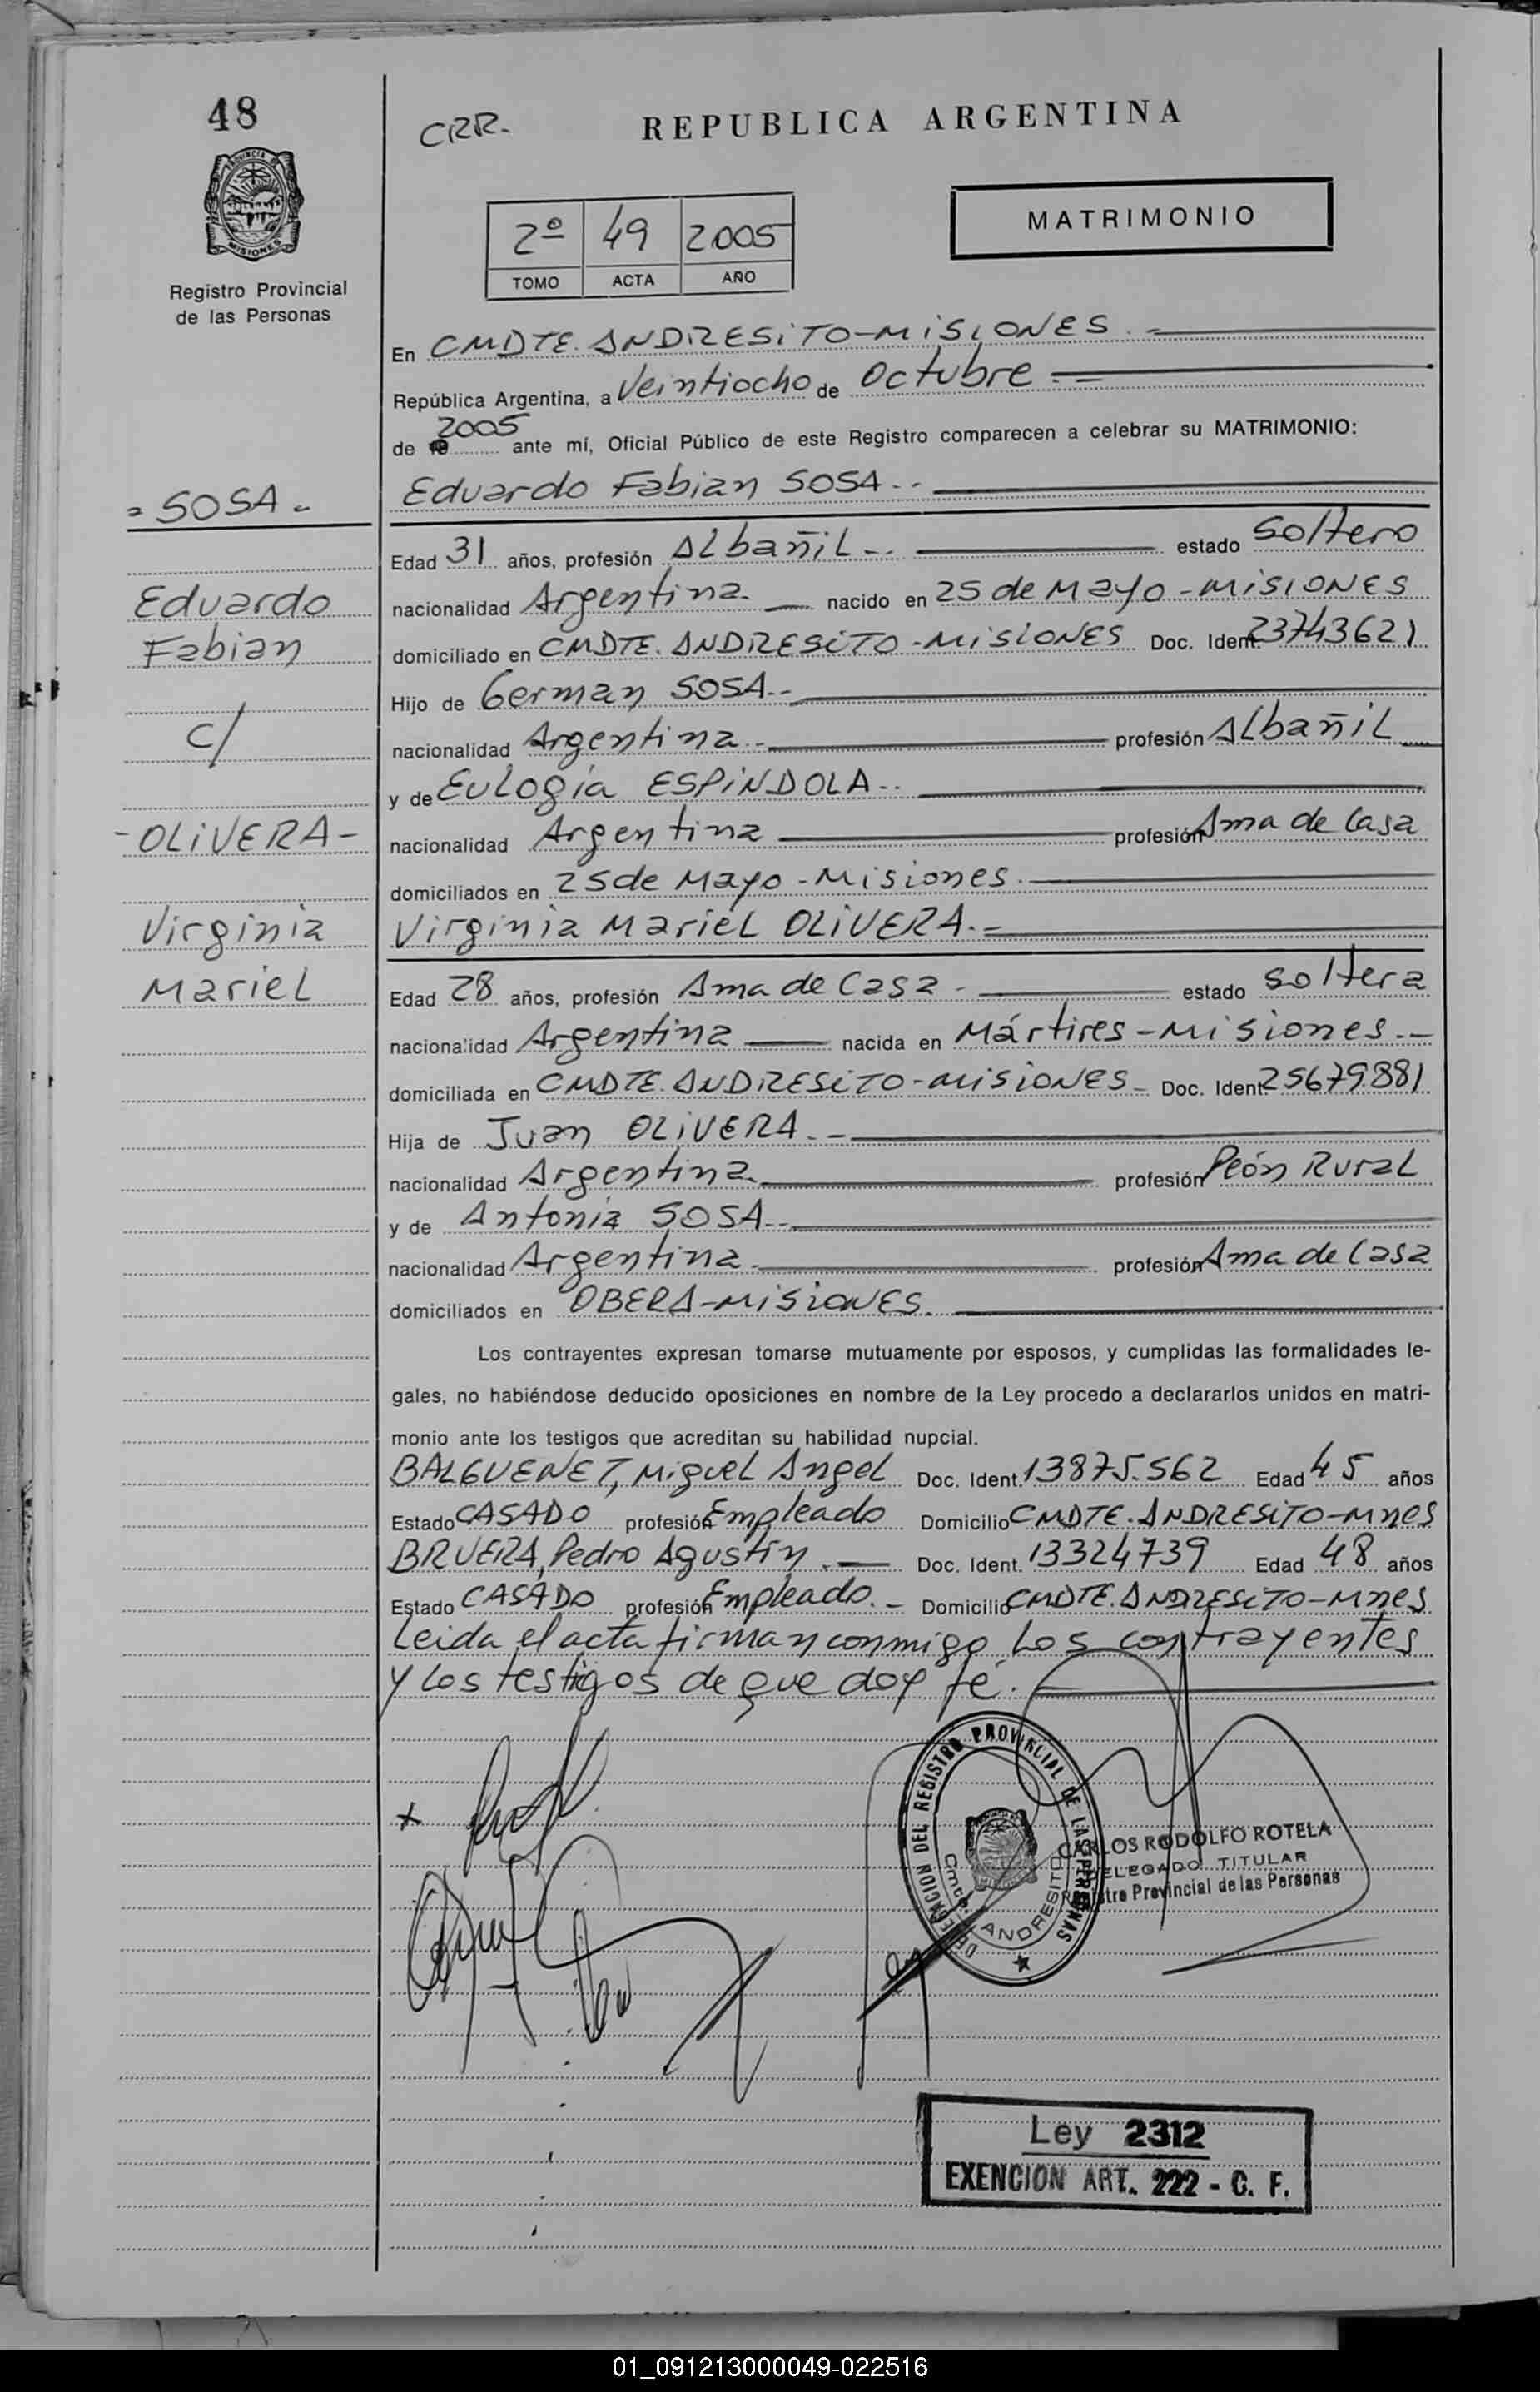 48
CRR.
REPUBLICA ARGENTINA
PROVINCIA DE
MISIONES
Registro Provincial
de las Personas
2º 49 2005
TOMO ACTA AÑO
MATRIMONIO
En CMDTE. ANDRESiTO-MiSiONES.-
República Argentina, a Veintiocho de Octubre.-
de 2005 ante mí, Oficial Público de este Registro comparecen a celebrar su MATRIMONIO:
- SOSA - Eduardo Fabian SOSA.-
Edad 31 años, profesión Albañil.- estado Soltero
Eduardo nacionalidad Argentina. nacido en 25 de Mayo - MiSiONES
Fabian domiciliado en CMDTE. ANDRESiTO - MiSiONES Doc. Ident. 23743621
Hijo de German SOSA.-
c/ nacionalidad Argentina.- profesión Albañil
y de Eulogia ESPiNDOLA.-
- OLiVERA - nacionalidad Argentina profesión Ama de Casa
domiciliados en 25 de Mayo - Misiones.
Virginia Virginia Mariel OLiVERA.-
Mariel Edad 28 años, profesión Ama de Casa - estado Soltera
nacionalidad Argentina nacida en Mártires - Misiones.-
domiciliada en CMDTE. ANDRESiTO - MiSiONES - Doc. Ident. 25679881
Hija de Juan OLiVERA.-
nacionalidad Argentina. profesión Peón Rural
y de Antonia SOSA.-
nacionalidad Argentina. profesión Ama de Casa
domiciliados en OBERA - MiSiONES.
Los contrayentes expresan tomarse mutuamente por esposos, y cumplidas las formalidades le-
gales, no habiéndose deducido oposiciones en nombre de la Ley procedo a declararlos unidos en matri-
monio ante los testigos que acreditan su habilidad nupcial.
BALGUENET, Miguel Angel Doc. Ident. 13875.562 Edad 45 años
Estado CASADO profesión Empleado Domicilio CMDTE. ANDRESiTO - Mnes
BRUERA, Pedro Agustin.- Doc. Ident. 13324739 Edad 48 años
Estado CASADO profesión Empleado.- Domicilio CMDTE. ANDRESiTO - Mnes
Leida el acta firman conmigo Los contrayentes
y Los testigos de que doy fé.
DEL REGISTRO PROVINCIAL DE LAS PERSONAS
Cmte. ANDRESITO
CARLOS RODOLFO ROTELA
DELEGADO TITULAR
Registro Provincial de las Personas
Ley 2312
EXENCION ART. 222 - C. F.
01_091213000049-022516